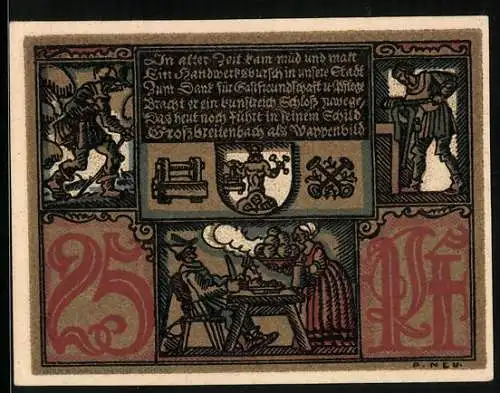 In alter Zeit kam müd und matt
Ein Handwerksbursch in unsere Stadt
Zum Dank für Gastfreundschaft u. Pflege
Bracht er ein kunstreich Schloß zuwege,
Das heut noch führt in seinem Schild
Großbreitenbach als Wappenbild
25 Pf
P. NEU.